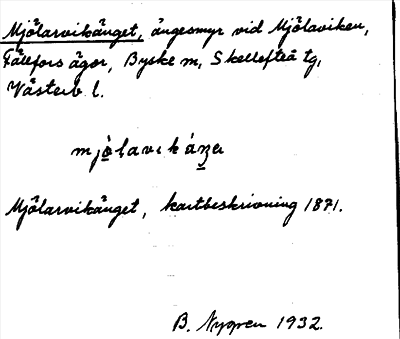 Mjölarvikänget, ängesmyr vid Mjölaviken,
Fällfors ägor, Byske sn, Skellefteå tg,
Västerb. l.
Mjölarvikänget, kartbeskrivning 1871.
B. Nygren 1932.